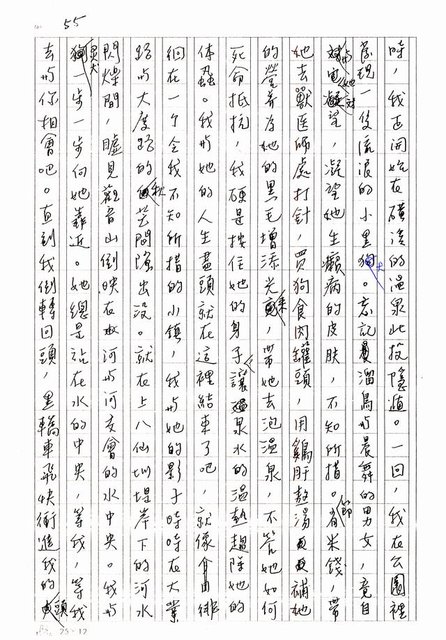 55
時，我正開始在礦渣的溫泉此投隱遁。一回，我在公園裡
發現一隻流浪的小黑犬。忘記溜鳥與晨舞的男女，竟自
與她對凝望，凝望她生癩病的皮膚，不知所措。節省米錢，帶
她去獸醫師處打針，買狗食肉罐頭，用鷄肝熬湯補她
的營養為她的黑毛增添光采，帶她去泡溫泉，不管她如何
死命抵抗，我硬是按住她的身子讓溫泉水的溫熱趨除她的
體蟲。我與她的人生盡頭就在這裡結束了吧，就像自由徘
徊在一个令我不知所措的小鎮，我與她的影子時時在大業
路與大度路的秋芒間隱出沒。就在上八仙圳堤岸下的河水
閃爍間，瞧見觀音山倒映在河與河交會的水中央。我與
黑犬一步一步向她靠近。她總是站在水的中央，等我，等我
去與你相會吧。直到我倒轉回頭，黑轎車飛快衝進我的頭
25×12